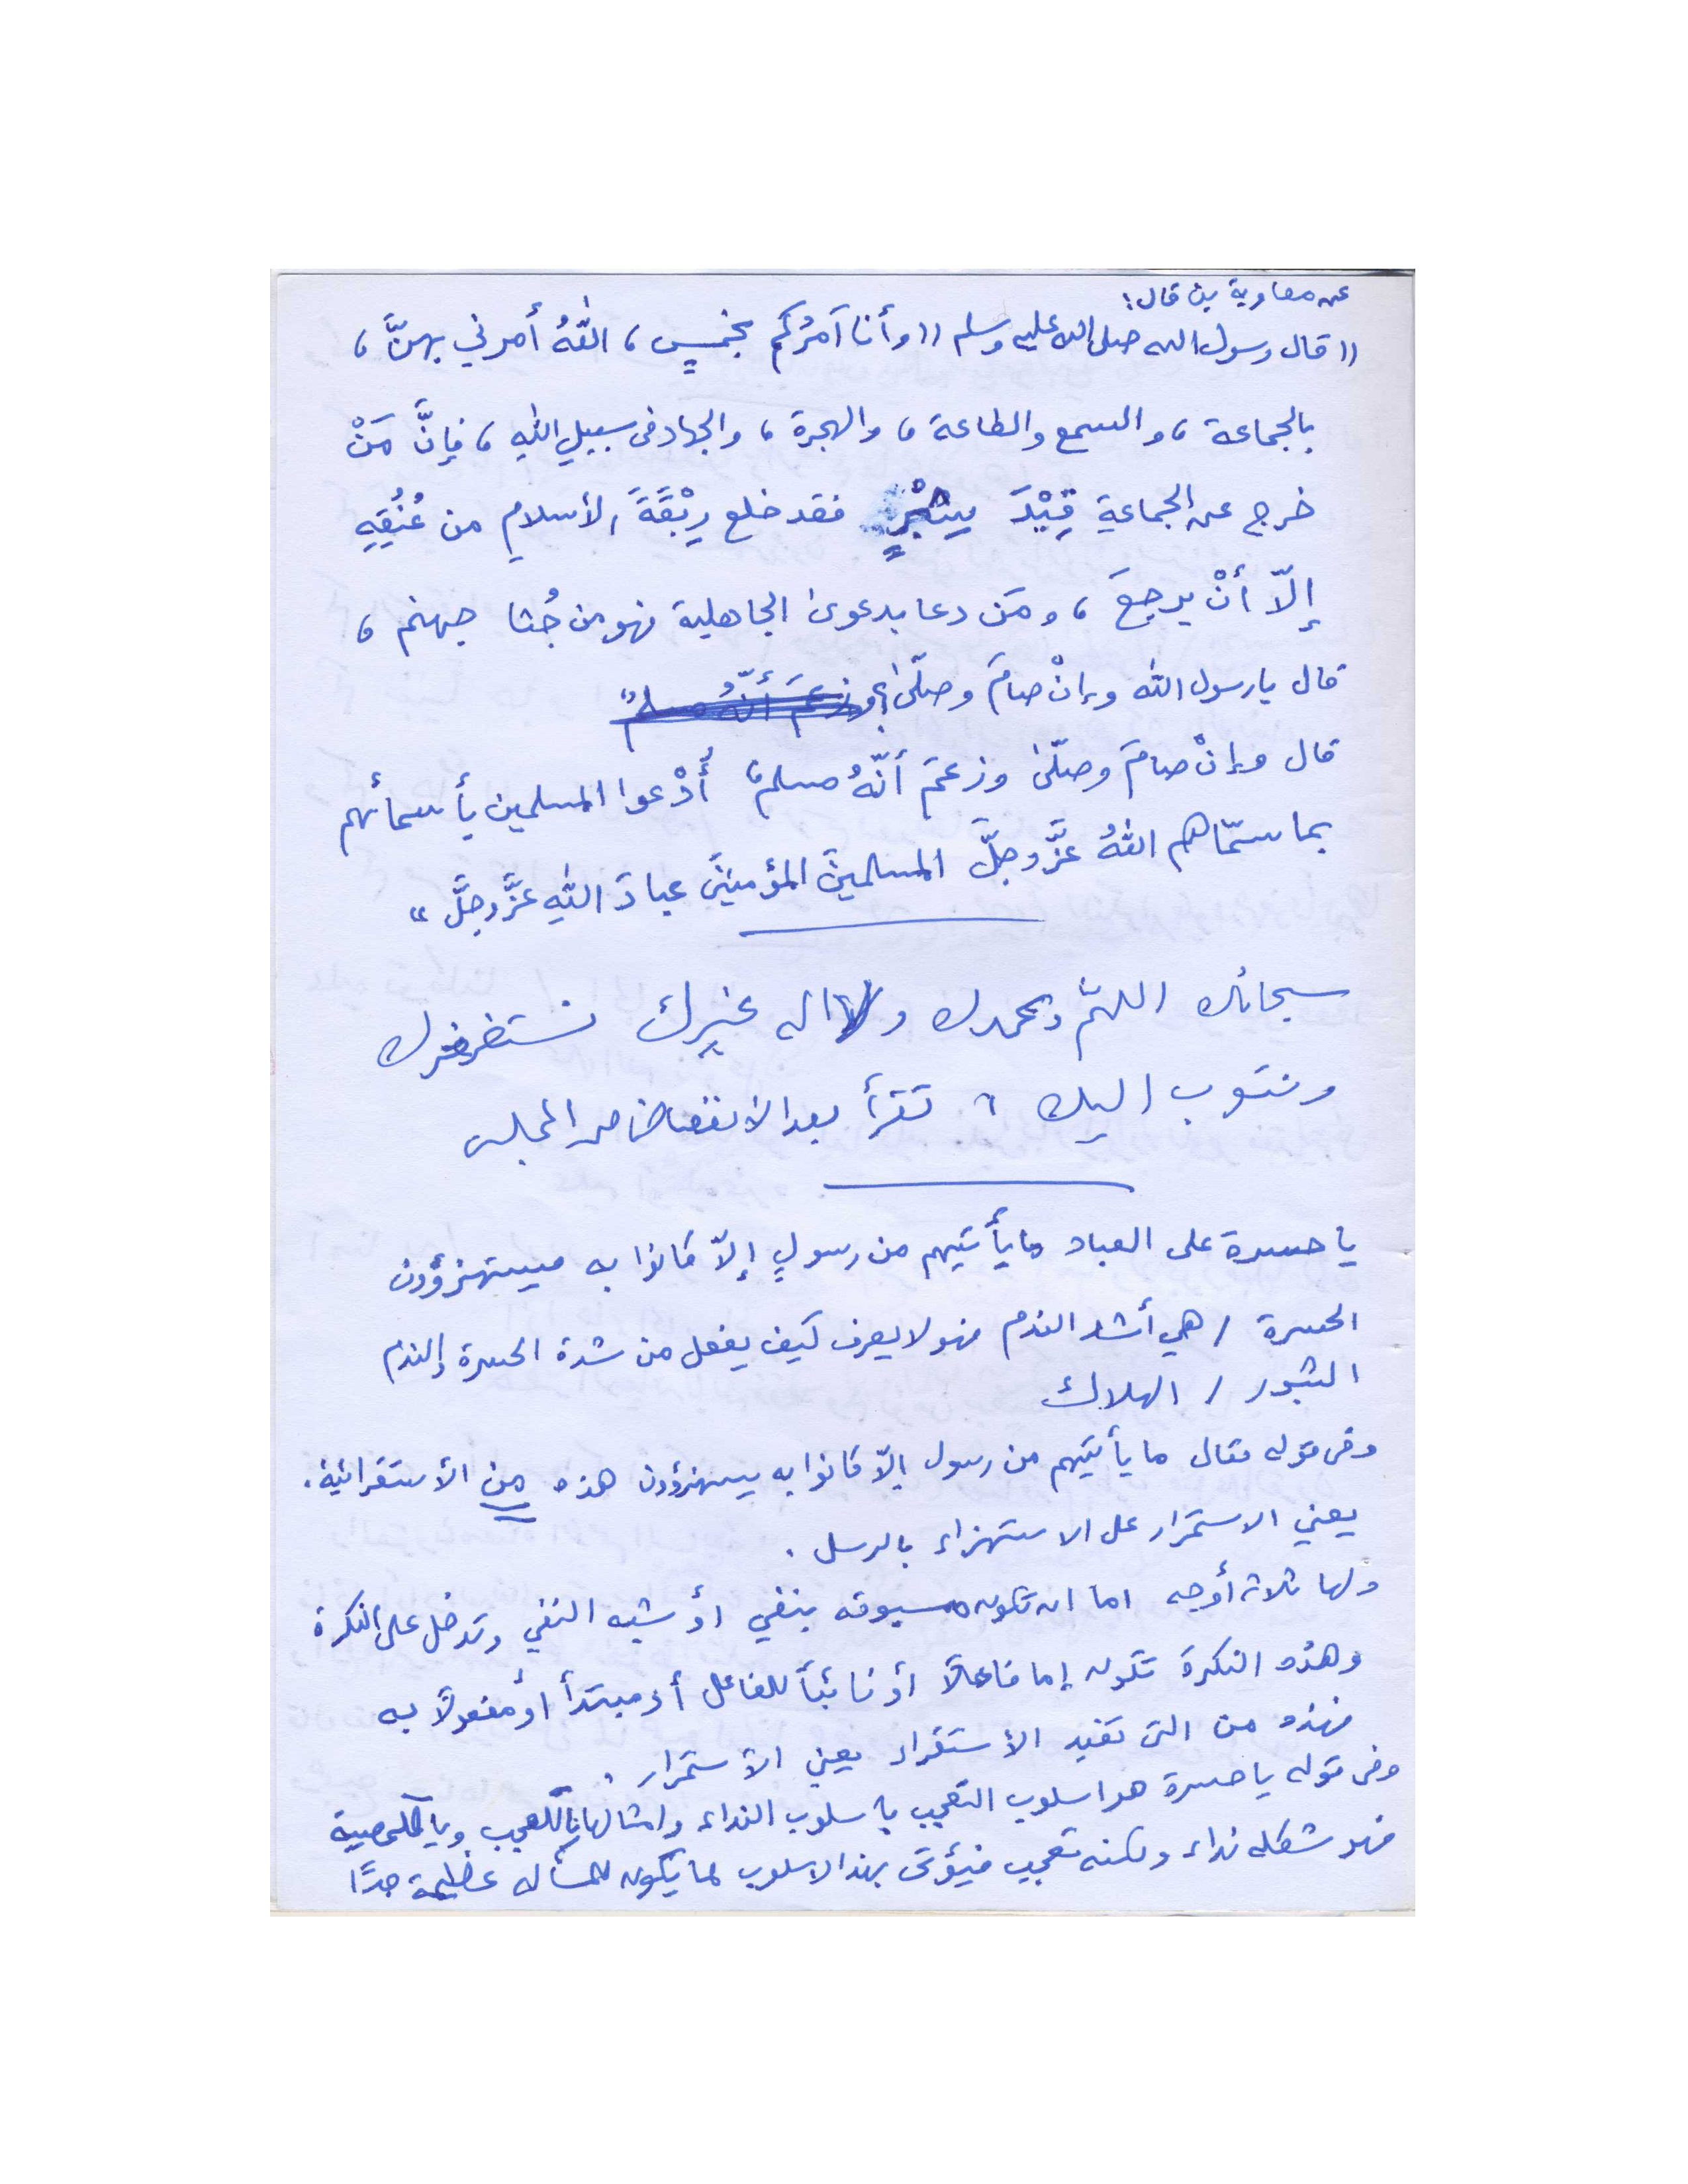 عن معاوية بن قال:
(( قال رسول الله صلى الله عليه وسلم (( وأنا آمرُكُم بخمسٍ ، اللهُ أمرني بهنَّ ،
بالجماعة ، والسمع والطاعة ، والهجرة ، والجهاد في سبيلِ اللهِ ، فإنَّ مَنْ
خرج عن الجماعةِ قِيْدَ شِبْرٍ فقد خلع رِبْقَةَ الأسلامِ من عُنُقِهِ
إلّا أنْ يرجعَ ، ومَن دعا بدعوىٰ الجاهلية فهو من جُثا جهنم ،
قال يا رسول الله وإنْ صامَ وصلّىٰ؟ وزعَمَ أنّهُ مسلمٌ
قال وإنْ صامَ وصلّىٰ وزعمَ أنّهُ مسلمٌ أُدْعوا المسلمين بأسمائهم
بما سمّاهم اللهُ عزَّ وجلَّ المسلمينَ المؤمنينَ عبادَ اللهِ عزَّ وجلَّ "
سبحانك اللهمّ وبحمدك ولا اله غيرك نستغفرك
ونتوب اليك ، تقرأ بعد الانفضاض من المجلس
يا حسرة على العباد ما يأتيهم من رسولٍ إلّا كانوا به يستهزؤون
الحسرة / هي أشد الندم فهو لا يعرف كيف يفعل من شدة الحسرة والندم
الثبور / الهلاك
وفي قوله تعال ما يأتيهم من رسول إلّا كانوا به يستهزؤون هذه من الأستقرائية .
يعني الاستمرار على الاستهزاء بالرسل .
ولها ثلاثة أوجه اما ان تكون مسبوقه بنفي أو شبه النفي وتدخل على النكرة
وهذه النكرة تكون إما فاعلاً أو نائباً للفاعل أو مبتدأ أو مفعولاً به
فهذه من التي تفيد الأستقراء يعني الأستمرار .
وفي قوله يا حسرة هو اسلوب التعجب بأسلوب النداء وامثالها يا للعجب ويا للمصيبة
فهو شكله نداء ولكنه تعجب فيؤتى بهذا الاسلوب لما يكون للمسأله عظيمة جدًا